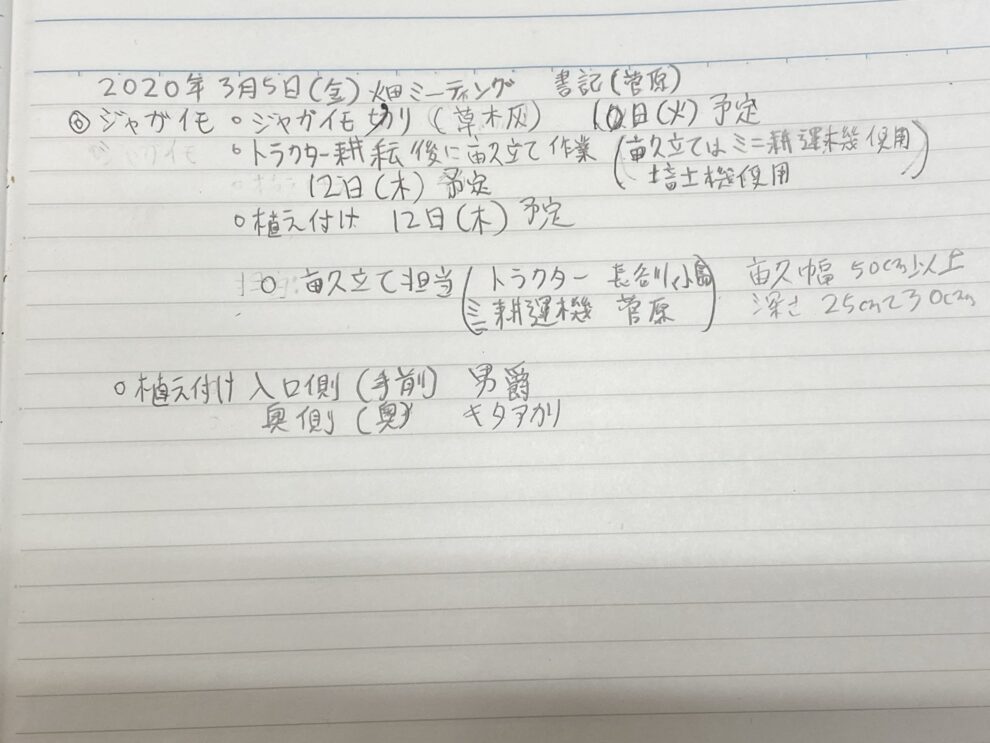 2020年3月5日(金) 畑ミーティング 書記(菅原)
◎ジャガイモ ○ジャガイモ切り (草木灰) 10日(火)予定
○トラクター耕耘後に畝立て作業 (畝立てはミニ耕運機使用
12日(木)予定 培土機使用)
○植え付け 12日(木)予定
○畝立て担当 (トラクター 長谷川,小島 畝幅 50cm以上
ミニ耕運機 菅原) 深さ 25cmで30cm
○植え付け 入口側(手前) 男爵
奥側(奥) キタアカリ